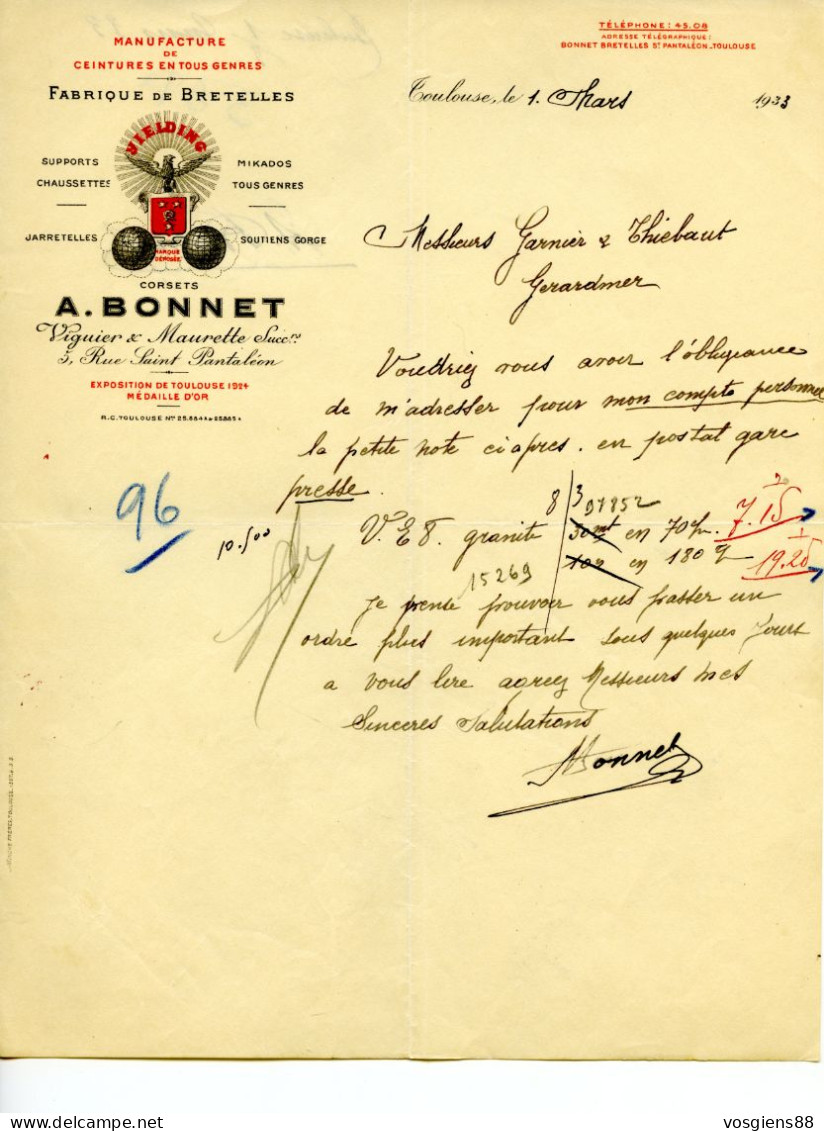 MANUFACTURE
DE
CEINTURES EN TOUS GENRES
FABRIQUE DE BRETELLES
YIELDING
SUPPORTS
CHAUSSETTES
MIKADOS
TOUS GENRES
JARRETELLES
SOUTIENS GORGE
MARQUE
DÉPOSÉE
CORSETS
A. BONNET
Viguier & Maurette Succ.rs
5, Rue Saint Pantaléon
EXPOSITION DE TOULOUSE 1924
MÉDAILLE D'OR
R.C. TOULOUSE Nos 25.884 A & 25885 A
TÉLÉPHONE : 45.08
ADRESSE TÉLÉGRAPHIQUE :
BONNET BRETELLES St PANTALÉON_TOULOUSE
Toulouse, le 1. Mars 1933
Messieurs Garnier & Thiebaut
Gerardmer
Voudriez vous avoir l'obligeance
de m'adresser pour mon compte personnel
la petite note ci apres. en postal gare
presse.
96
10.500
8/3 07852
V.E.T. granite 30mt en 70 7.15
15269
10 en 180 19.25
Je pense pouvoir vous passer un
ordre plus important sous quelques jours
a vous lire agreez Messieurs mes
Sinceres Salutations
ABonnet
vosgiens88